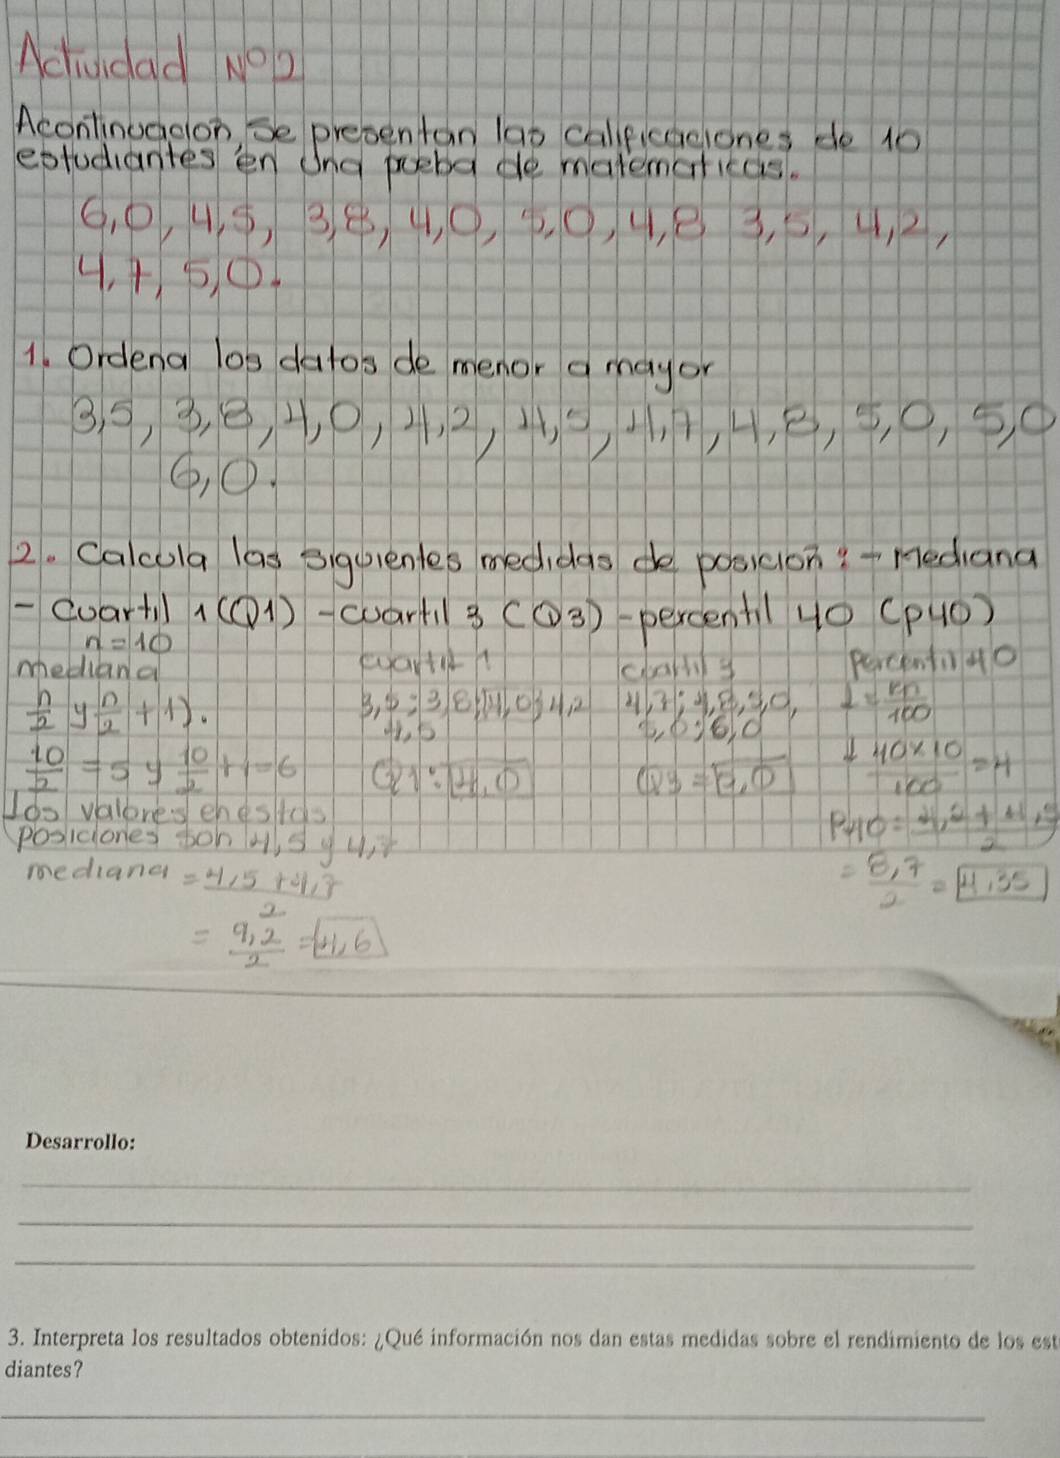 Actividad Nº2
Acontinuación, Se presentan las calificaciones de 10
estudiantes en Una pueba de matematicas.
6,0, 4,5, 3,8, 4,0, 5,0, 4,8 3,5, 4,2,
4,7, 5,0.
1. Ordena los datos de menor a mayor
3,5, 3,8, 4,0, 4,2, 4,5, 4,7, 4,8, 5,0, 5,0
6,0.
2. Calcula las siguientes medidas de posición: - Mediana
- Cuartil 1 (Q1) - cuartil 3 (Q3) - percentil 40 (P40)
n=10
mediana
n/2 y n/2 + 1).
10/2 = 5 y 10/2 + 1 = 6
Los valores en estas
posiciones son 4,5 y 4,7
mediana = 4,5 + 4,7 / 2
= 9,2 / 2 = 4,6
cuartil 1
3,5; 3,8; 4,0; 4,2
4,5
Q1: 4,0
Cuartil 3
4,7; 4,8, 5,0,
5,0; 6,0
Q3 = 5,0
Percentil 40
kn / 100
40x10 / 100 = 4
P40 = 4,2 + 4,5 / 2
= 8,7 / 2 = 4,35
Desarrollo:
3. Interpreta los resultados obtenidos: ¿Qué información nos dan estas medidas sobre el rendimiento de los est
diantes?